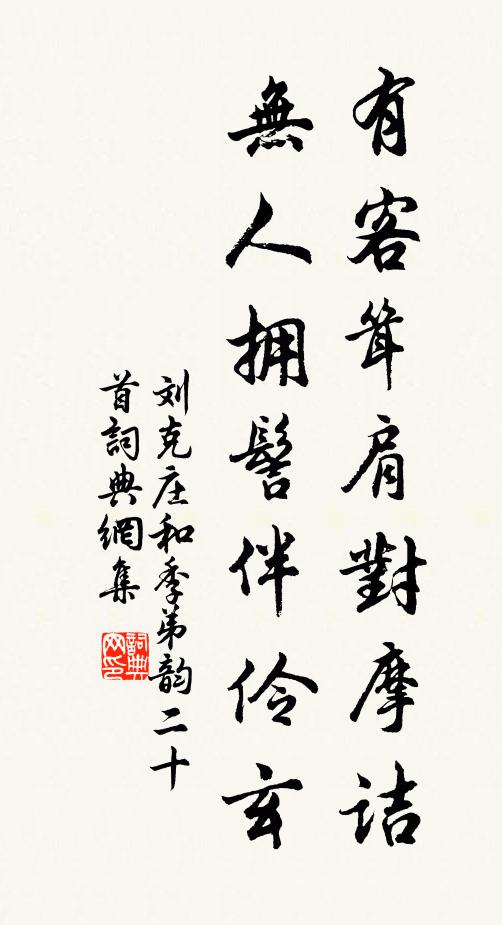 有客耸肩對摩詰
無人拥髻伴伶玄
刘克庄和季弟韵二十
首詞典網集
詞典网印